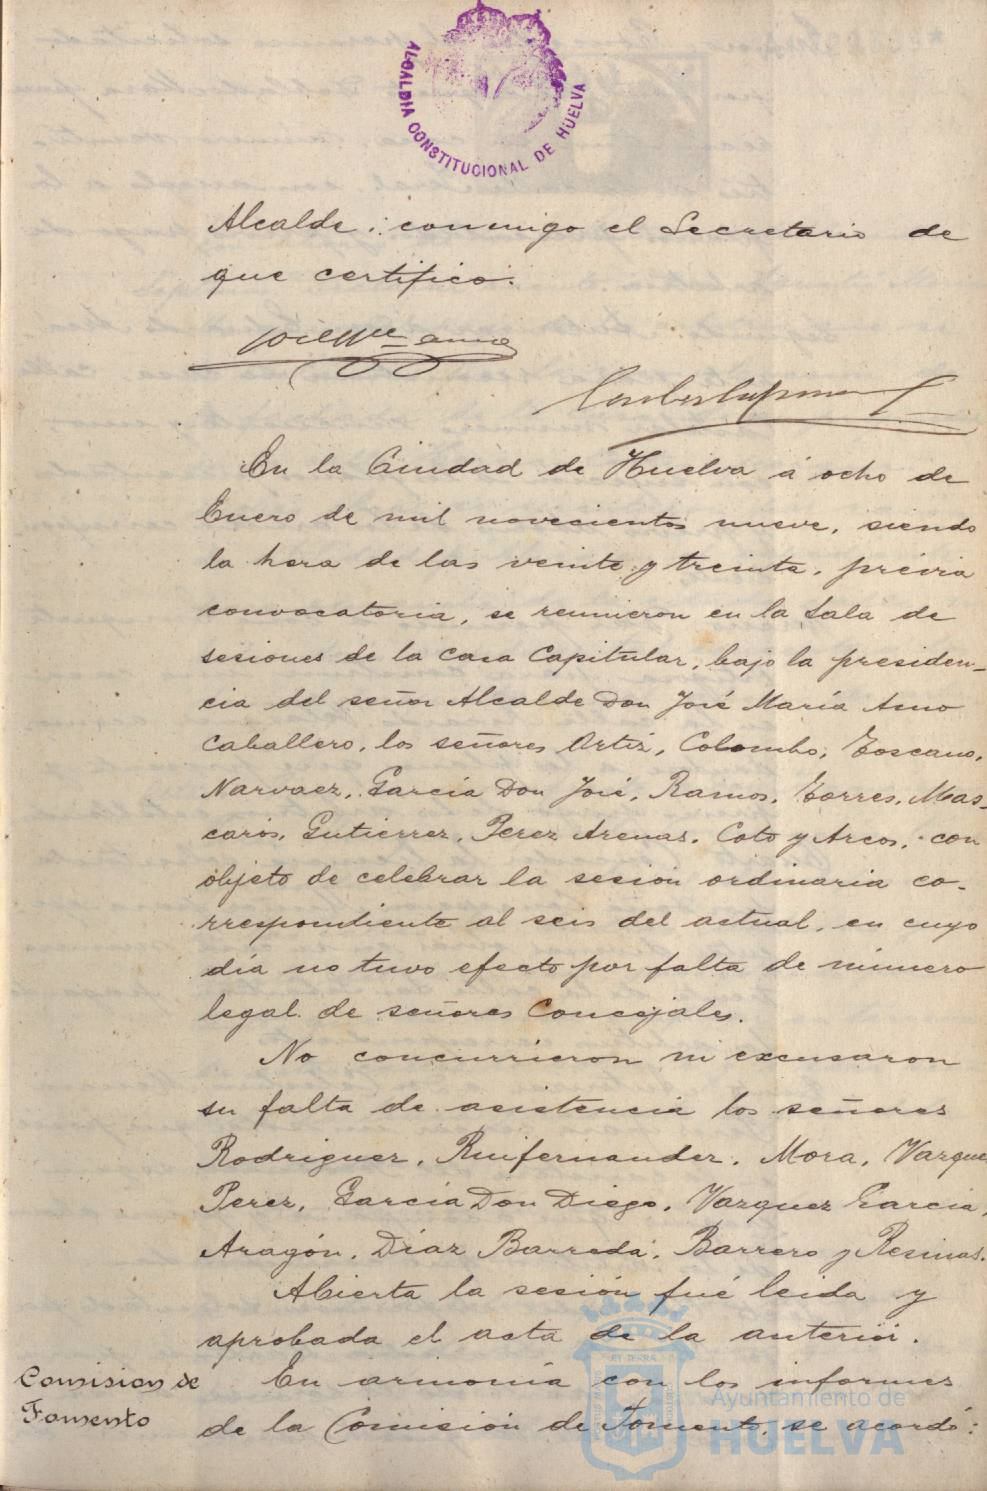 ALCALDIA CONSTITUCIONAL DE HUELVA
Alcalde: conmigo el Secretario de
que certifico.
En la Ciudad de Huelva á ocho de
Enero de mil novecientos nueve, siendo
la hora de las veinte y treinta, prévia
convocatoria, se reunieron en la Sala de
sesiones de la casa Capitular, bajo la presiden-
cia del señor Alcalde Don José María Amo
Caballero, los señores Ortiz, Colombo, Toscano,
Narvaez, García Don José, Ramos, Torres, Mas-
carós, Gutierrez, Perez Arenas, Coto y Arcos, con
objeto de celebrar la sesión ordinaria co-
rrespondiente al seis del actual, en cuyo
día no tuvo efecto por falta de número
legal de señores Concejales.
No concurrieron ni excusaron
su falta de asistencia los señores
Rodriguez, Ruifernandez, Mora, Vazquez
Perez, García Don Diego, Vazquez García,
Aragón, Díaz Barreda, Barrero y Resinas.
Abierta la sesión fué leida y
aprobada el acta de la anterior.
Comision de
Fomento
En armonía con los informes
de la Comisión de Fomento, se acordó:
Ayuntamiento de
HUELVA